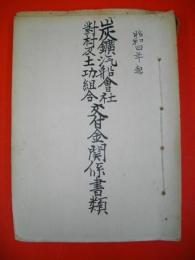 昭和四年起
炭鑛汽船會社
對村及土功組合
交付金関係書類